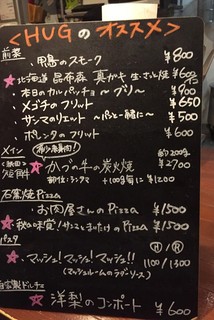 <HUGのオススメ>
前菜
・鴨島のスモーク ¥800
★北海道 昆布森 真ガキ 生・さんが焼 ¥600
・本日のカルパッチョ 〜ブリ〜 ¥900
・メゴチのフリット ¥650
・サンマのリエット 〜パンと一緒に〜 ¥500
・ポレンタのフリット ¥600
メイン
希少赤身肉!
約200g
★かづの牛の炭火焼 ¥2700
部位:シンタマ +100g毎に ¥1200
石窯焼Pizza
★お肉屋さんのPizza ¥1500
★秋の味覚!サンマときのこのPizza ¥1500
パスタ
Ⓜ Ⓡ
★マッシュ!マッシュ!マッシュ!! 1100/1300
(マッシュルームのラグーソース)
自家製ドルチェ
★洋梨のコンポート ¥600